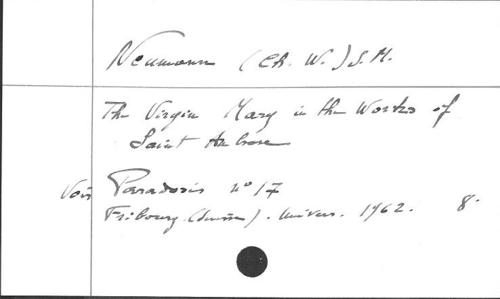 Neumann (Ch. W.) S.M.
The Virgin Mary in the Works of
Saint Ambrose
Voir Paradosis n° 17
Fribourg (Suisse). Univers. 1962. 8°